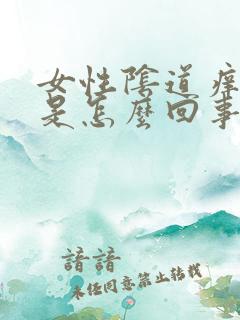 女性陰道痒
是怎麼回事
諳諳
未任同意禁止转载